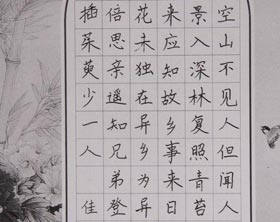 空山不见人但闻人
景入深林复照青苔
来应知故乡事来日
花未独在异乡为异
倍思亲遥知兄弟登
插茱萸少一人 佳